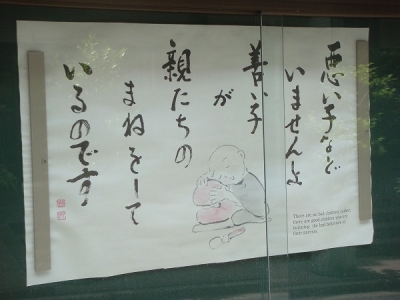 悪い子など
いませんよ
善い子
が
親たちの
まねをして
いるのです
There are no bad children
there are good children
the bad behaviors of
their parents.